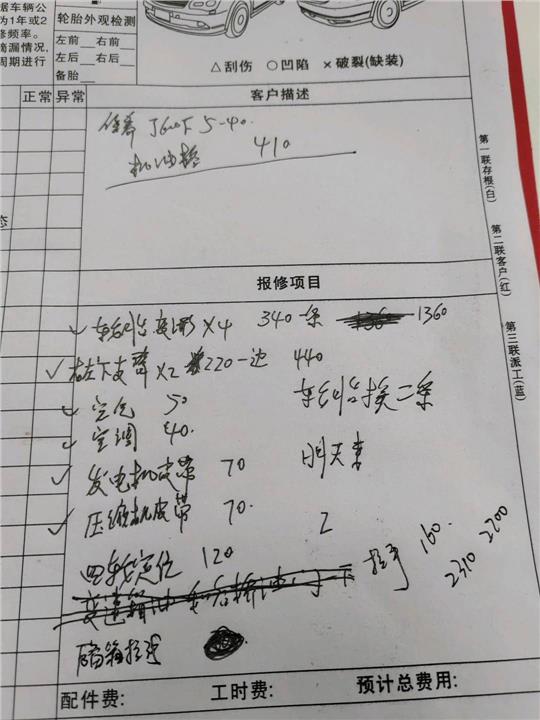 据车辆公
为1年或2
修频率。
滴漏情况,
周期进行
轮胎外观检测
左前__右前__
左后__右后__
备胎__
△刮伤 ○凹陷 ×破裂(缺装)
正常 异常
客户描述
5-40.
机油 410
第一联存根(白)
第二联客户(红)
第三联派工(蓝)
态
报修项目
✓ 轮胎 X4 340一条 1360
✓ 右左下皮 X2 220一边 440
✓ 空气 50
✓ 空调 40.
车轮胎换二条
✓ 发电机皮带 70
明天来
✓ 压缩机皮带 70.
2
四轮定位 120
160.
2310 2200
配件费: 工时费: 预计总费用: